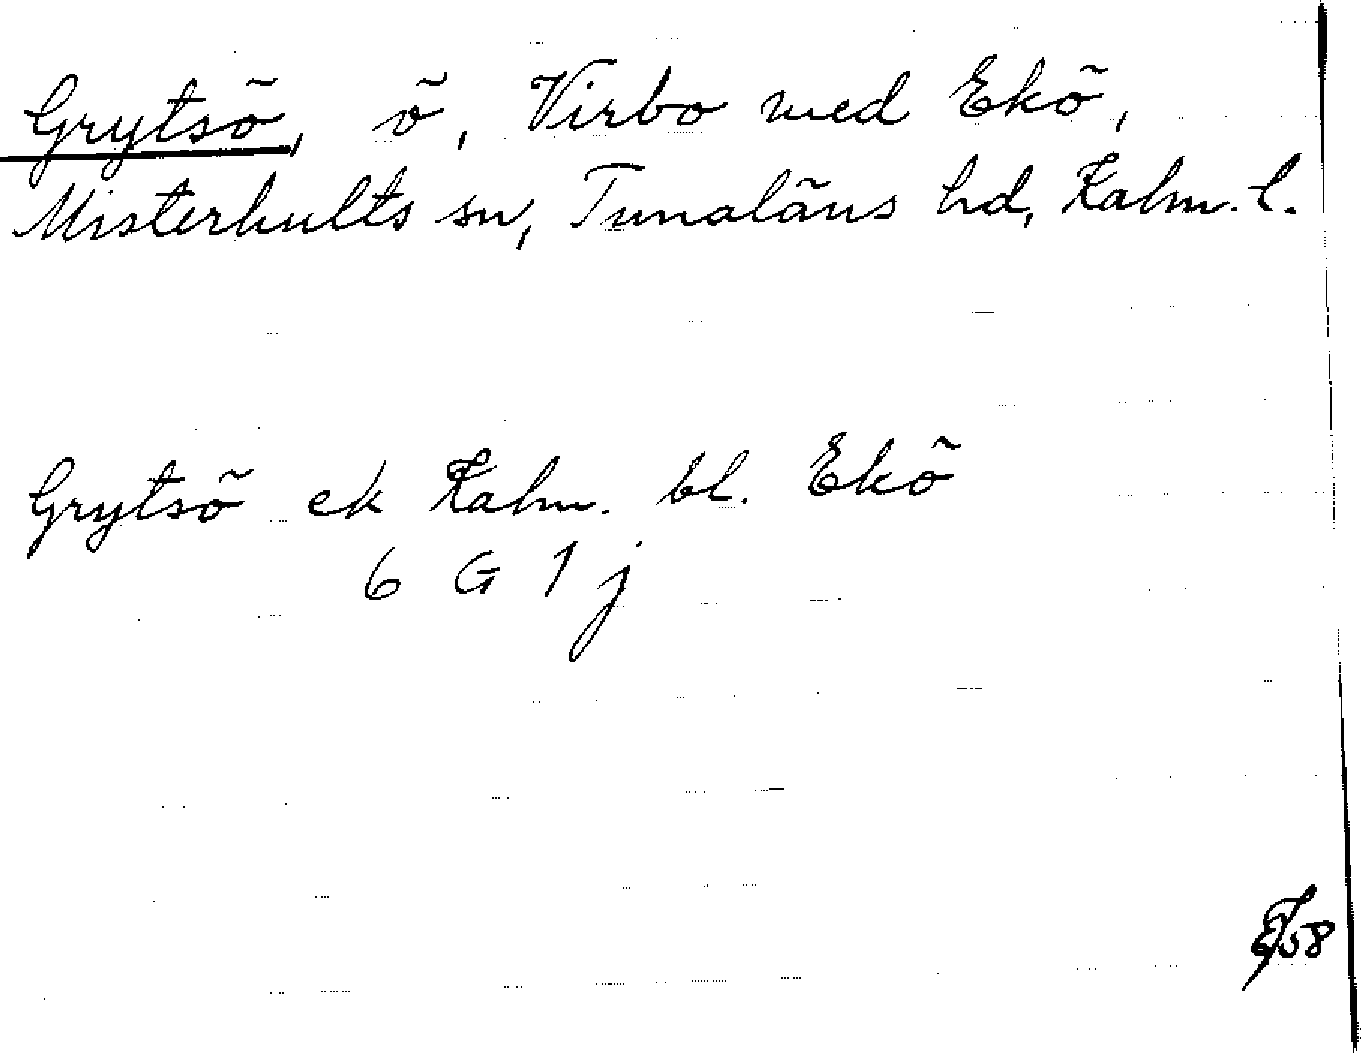 Grytsö, ö, Virbo med Ekö,
Misterhults sn, Tunaläns hd, Kalm. l.
Grytsö ek Kalm. bl. Ekö
6 G 1 j
58